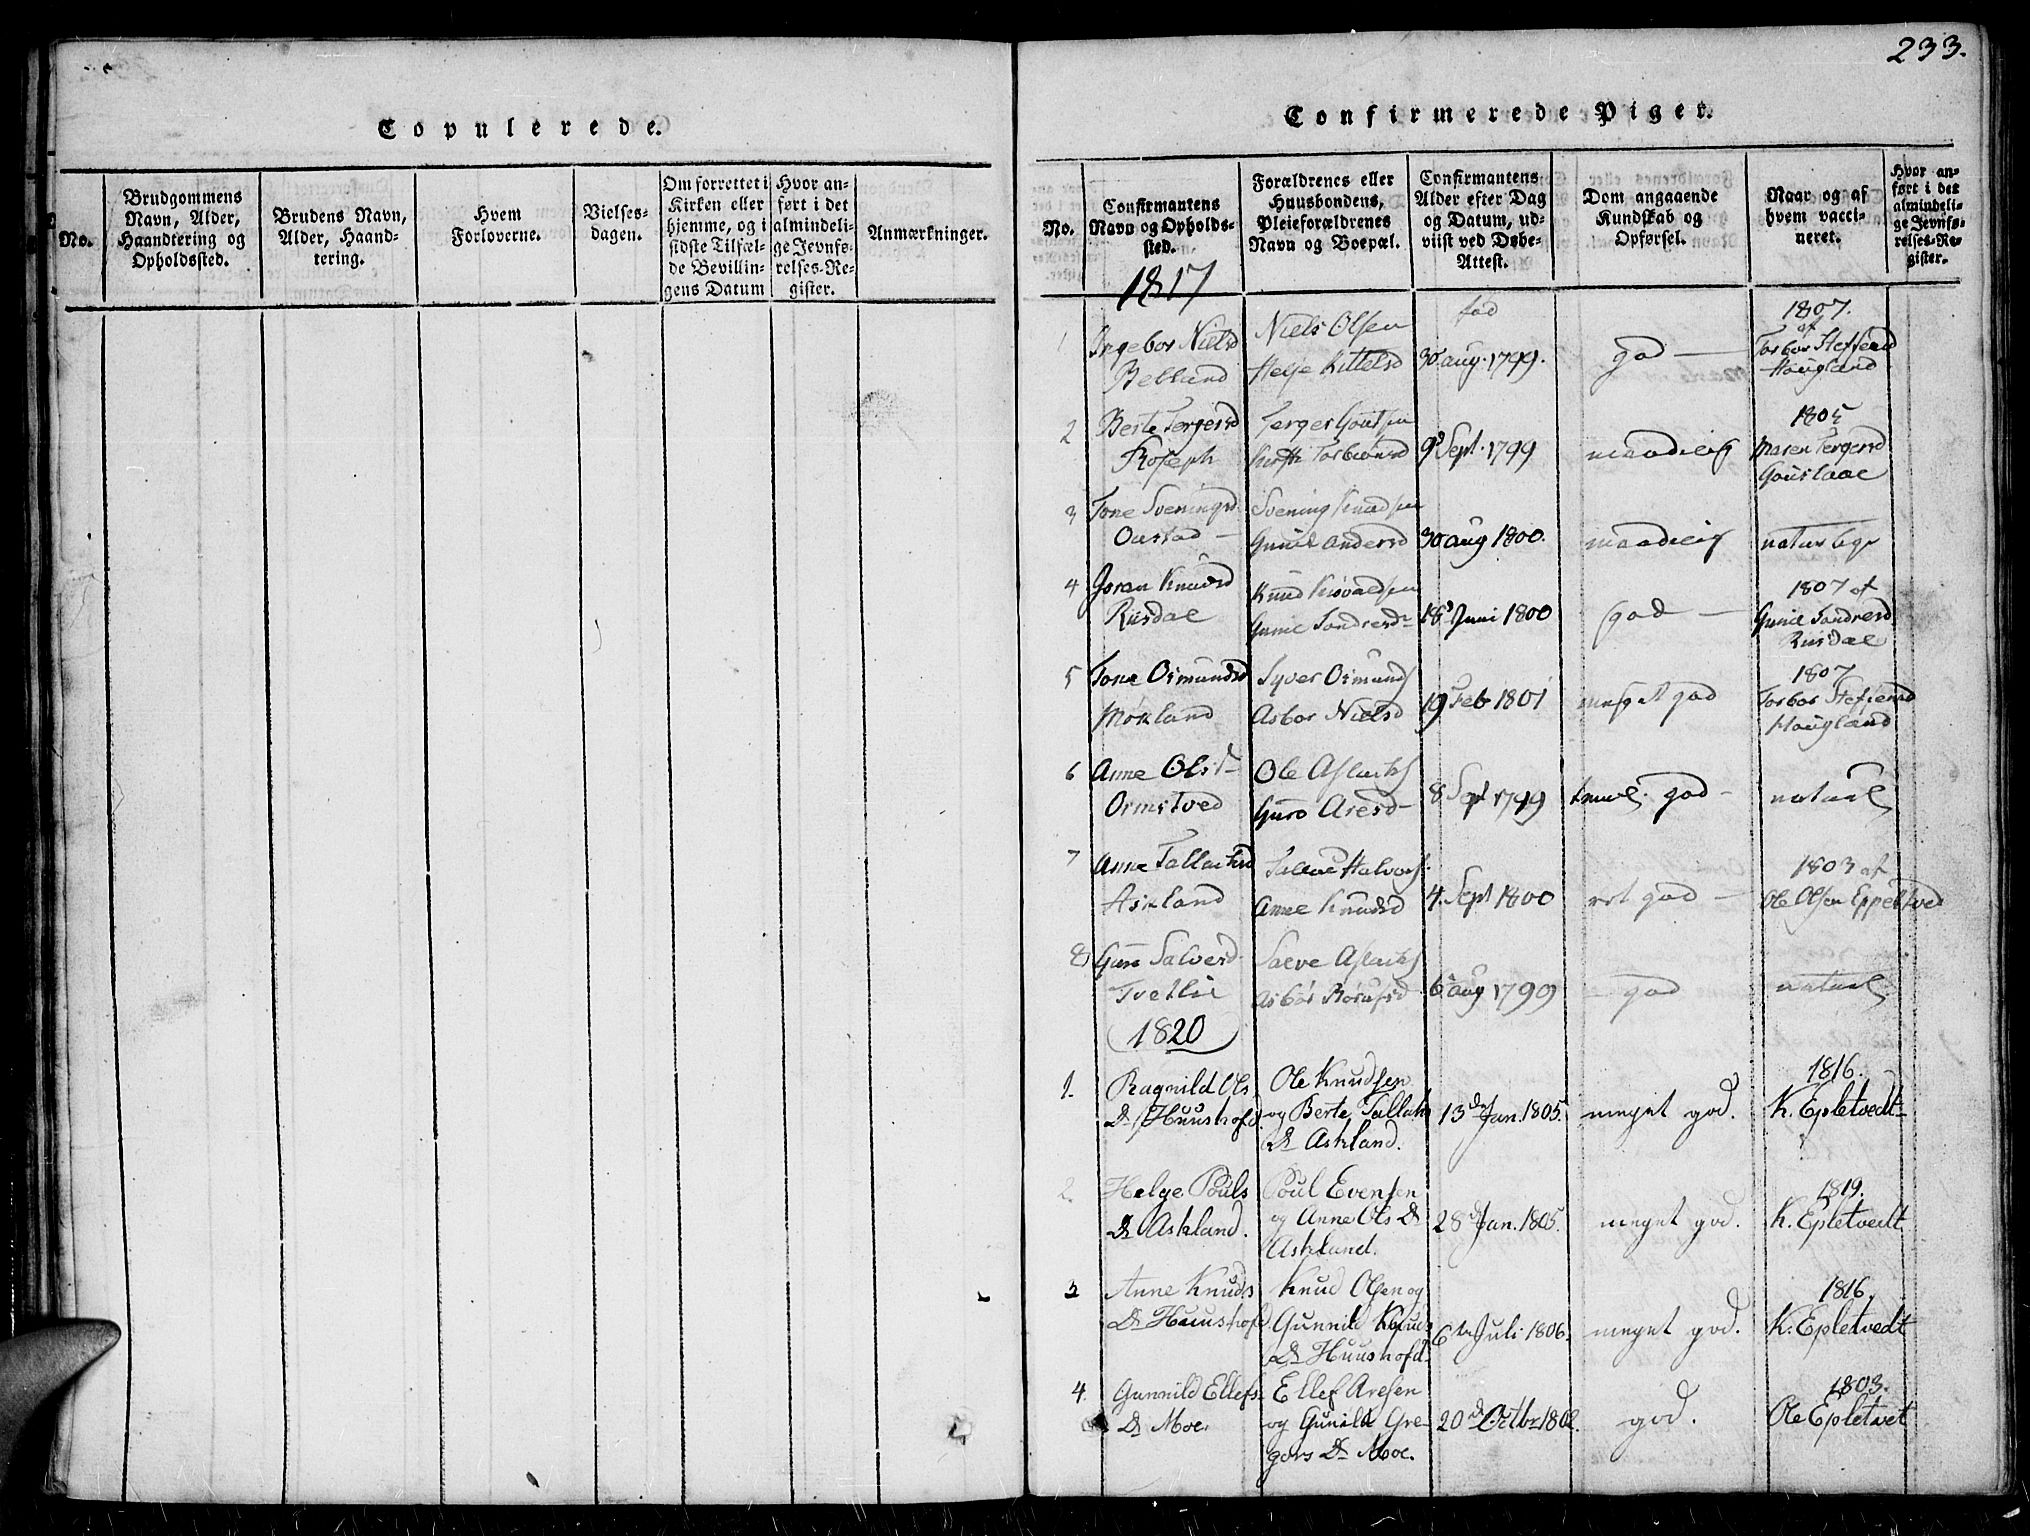 233.
Copulerede.
No.
Brudgommens Navn, Alder, Haandtering og Opholdssted.
Brudens Navn, Alder, Haandtering.
Hvem Forloverne.
Vielsesdagen.
Om forrettet i Kirken eller hjemme, og i sidste Tilfælde Bevillingens Datum
Hvor anført i det almindelige Jevnførelses-Register.
Anmærkninger.
Confirmerede Piger.
No.
Confirmantens Navn og Opholdssted.
Forældrenes eller Huusbondens, Pleieforældrenes Navn og Boepæl.
Confirmantens Alder efter Dag og Datum, udviist ved Døbe-Attest.
Dom angaaende Kundskab og Opførsel.
Naar og af hvem vaccineret.
Hvor anført i det almindelige Jevnførelses-Register.
1817
1 Ingebor Nielsd Niels Olsen fød 1807. af
Helje Kittelsd 30 aug. 1799. god Torbor Steffensd Haugland
2 Berte Tergersd 1805
Roseph 9 Sept. 1799 maadelig Maren Tergersd
3 Tone Sveningsd Svening Knudsen
Oustad Gunild Andersd 30 aug 1800. maadelig naturlige
4 Joran Knudsd 1807 af
Risdal Gunil Tondresd 18 Juni 1800 god Gunil Tondresd
Risdal
5 Tone Osmundsd Syver Osmunds 1807
Mørkland Asbor Nielsd 19 Feb 1801 meget god Torbor Steffensd
Haugland
6 Anne Olsd Ole Aslaks
Ormstved Guro Aresd 8 Sept 1799 god naturl
7 Anne Tallaksd Halvors 1803 af
Askland Anne Knudsd 4. Sept 1800 ret god Ole Olsen Eppeltved
8 Salvesd Salve Aslaks
Tvetlie 6 aug 1799 god naturl
1820
1. Ragnild Ols Ole Knudsen 1816.
Dr Huushofd. og Berte Tallaks 13de Jan. 1805. meget god. K. Epletvedt
Dr Askland.
2. Helge Pouls Poul Evensen 1819.
Dr Askland. og Anne Ols Dr 28de Jan. 1805. meget god. K. Epletvedt
Askland.
3 Anne Knuds Knud Olsen og 1816.
Dr Huushofd. Gunnild Knuds 6te Juli 1806. meget god. K. Epletvedt
Dr Huushofd.
4. Gunnild Ellefs Ellef Aresen 1803.
Dr Moe. og Gunild Gre- 20de Octbr 1802. god. Ole Epletvet
gors Dr Moe.